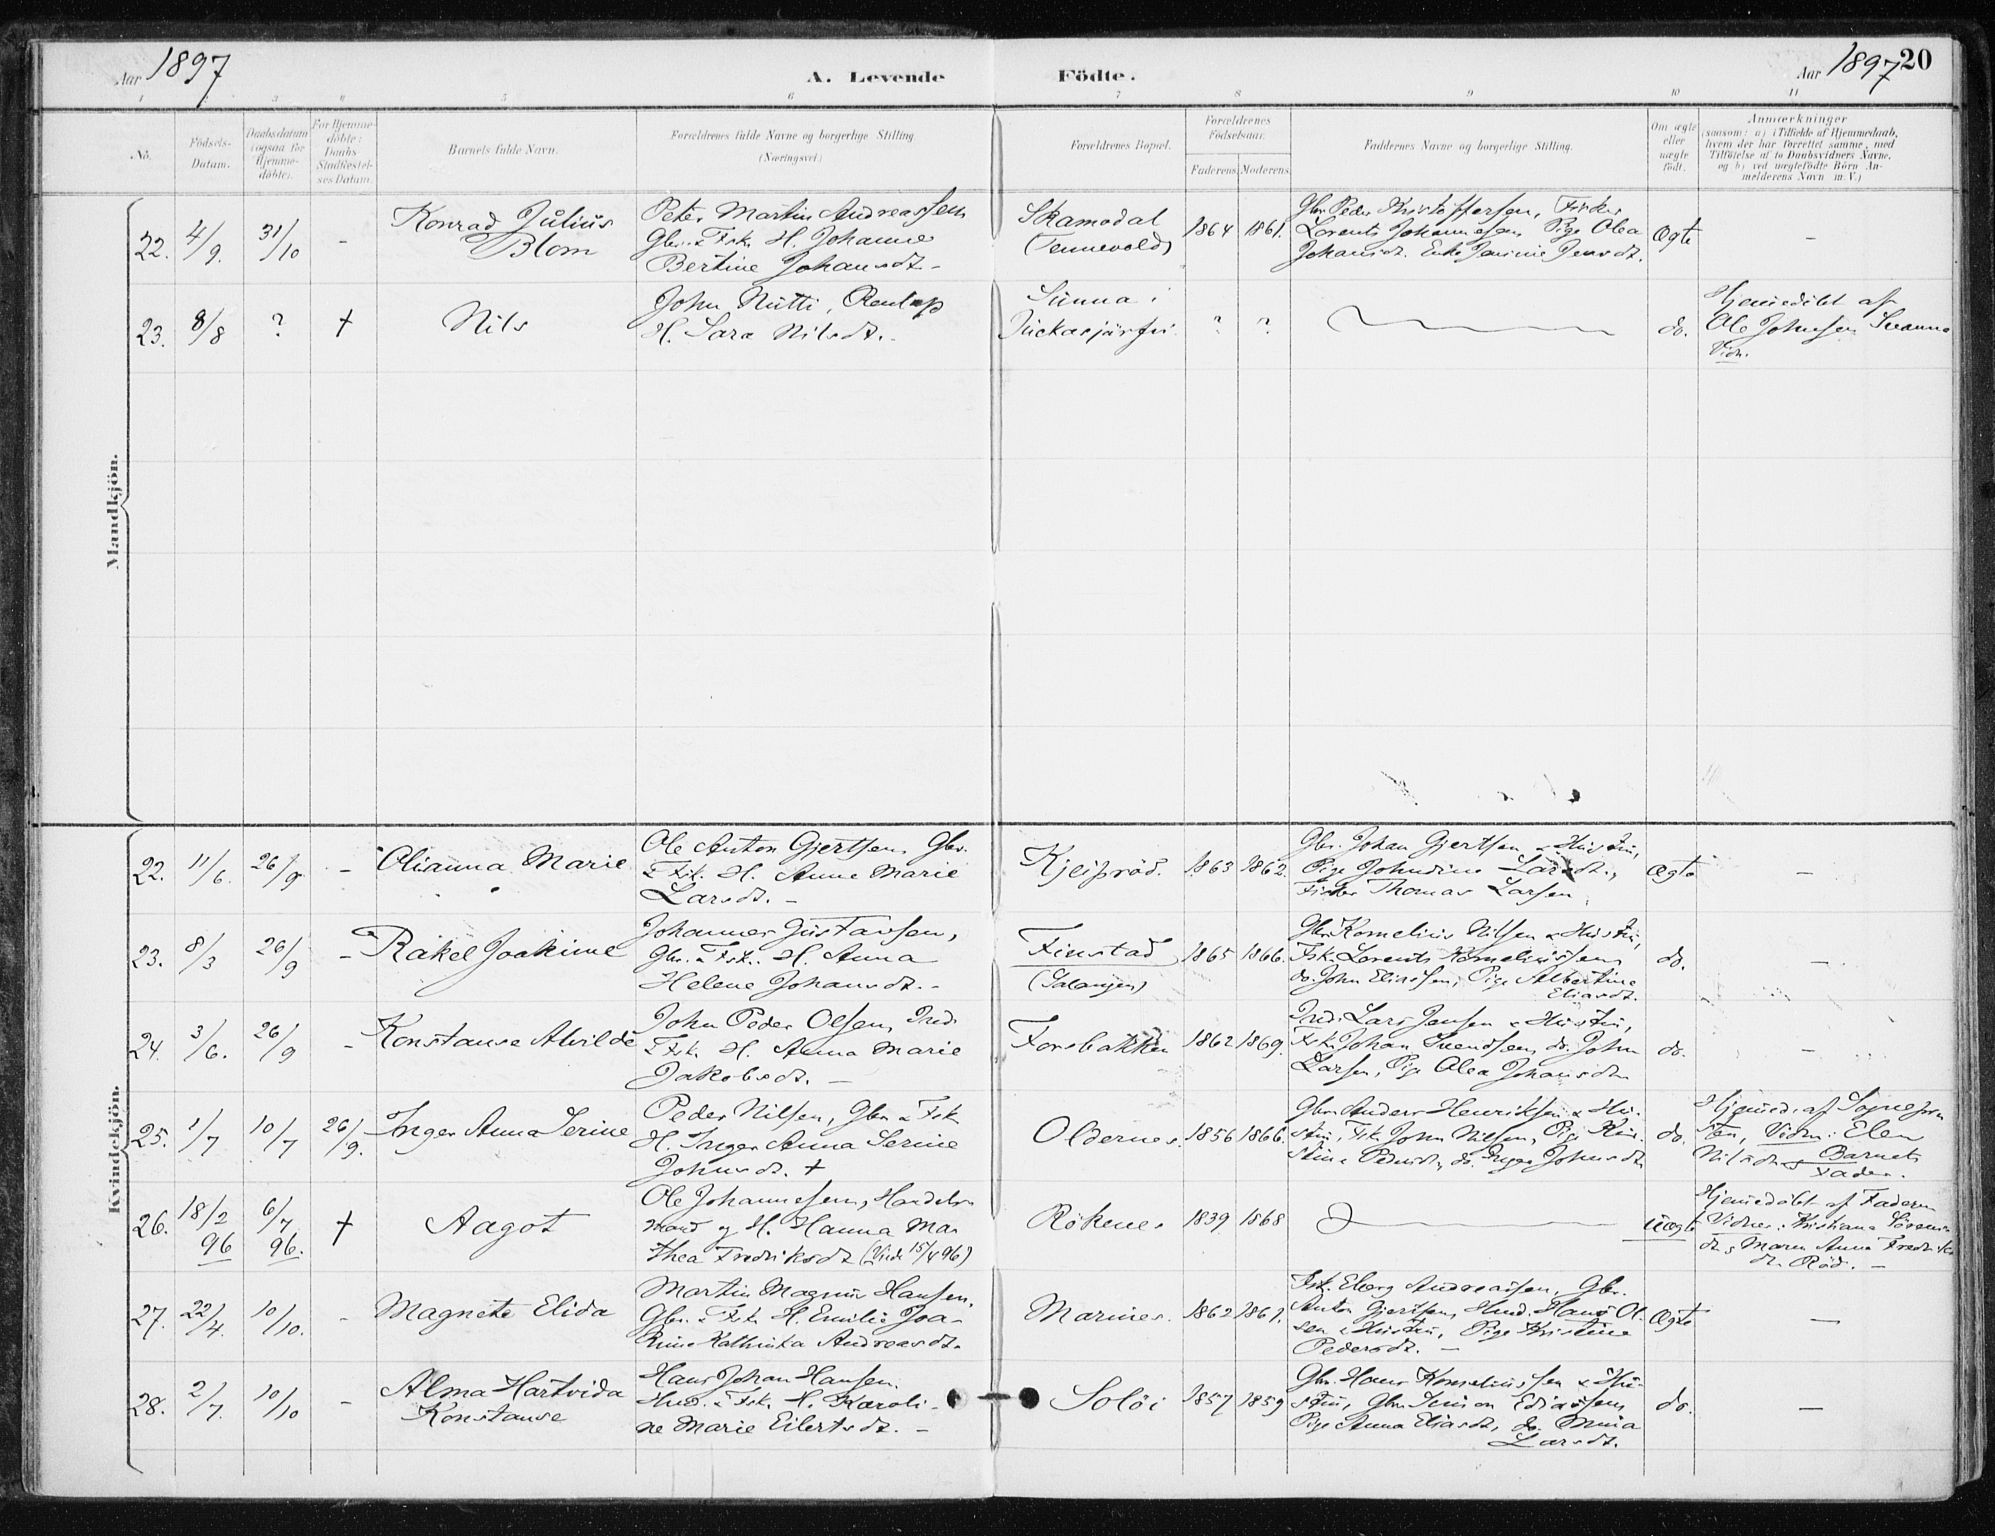 Aar 1897
A. Levende Födte.
Aar 1897
20
1 2 3 4 5 6 7 8 9 10 11
No.
Födsels-
Datum.
Daabsdatum
(ogsaa for
Hjemme-
döbte).
For Hjemme-
döbte:
Daabs
Stadfæstel-
ses Datum.
Barnets fulde Navn.
Forældrenes fulde Navne og borgerlige Stilling.
(Næringsvei.)
Forældrenes Bopæl.
Forældrenes
Födselsaar.
Faderens. Moderens.
Faddernes Navne og borgerlige Stilling.
Om ægte
eller
uægte
födt.
Anmærkninger
(saasom: a) i Tilfælde af Hjemmedaab,
hvem der har forrettet samme, med
Tilföielse af to Daabsvidners Navne,
og b) ved uægtefödte Börn An-
melderens Navn m. V.)
Mandkjön.
22. 4/9. 31/10 -
Konrad Julius
Blom
Peter Martin Andreassen
Gbr. & Fsk. H. Johanne
Bertine Johansdt. -
Skamodal
(Tennevold)
1864 1861.
Gbr. Peder Kristoffersen, Fisker
Lorents Johannesen, Pige Olea
Johansdt. Enke Jensdt.
Ægte
-
23. 8/8 ? †
Nils
John Nutti,
H. Sara Nilsdt. -
i
Juckasjärfvi
? ?
do.
Hjemmedöbt af
Ole Johnsen
Vidn.
Kvindekjön.
22. 11/6. 26/9 -
Olianna Marie
Ole Anton Gjertsen, Gbr.
& Fsk. H. Anne Marie
Larsdt. -
1863 1862.
Gbr. Johan Gjertsen & Hustru,
Pige Johndine Larsdt.,
Fisker Thomas Larsen.
Ægte
-
23. 8/3 26/9 -
Rakel Joakime
Johannes Gustavsen,
Gbr. & Fsk. H. Anna
Helene Johansdt. -
Finstad
(Salangen)
1865 1866.
Gbr. Kornelius Nilsen & Hustru,
Fsk. Lorents Korneliussen,
do. John Eliassen, Pige Albertine
Eliasdt.
do.
-
24. 3/6. 26/9 -
Konstanse Alvilde
John Peder Olsen, Inds
& Fsk. H. Anna Marie
Jakobsdt. -
Forsbakken
1862 1869.
Inds. Lars Jensen & Hustru,
Fsk. Johan Svendsen, do. John
Larsen, Pige Olea Johansdt.
do.
-
25. 1/7 10/7 26/9.
Inger Anna Serine
Peder Nilsen, Gbr. & Fsk
H. Inger Anna Serine
Johnsdt. †
Oldernes.
1856 1866.
Gbr. Anders Henriksen & Hu-
stru, Fsk. John Nilsen, Pige Kri-
stine Pedersdt., do. Inger Johnsdt.
do.
Hjemmed. af Sognepre-
sten, Vidn: Elen
Nilsdt. & Barnets
Fader.
26. 18/2 96 6/7 96. †
Aagot
Ole Johannesen, Handels-
mand og H. Hanna Mar-
thea Fredriksdt (Viede 15/4 96)
Rökenes
1839 1868
Uægte
Hjemmedöbt af Faderen
Vidner: Kristiana
dt, Maren Anna Fredriks
dt. Röd. -
27. 22/4. 10/10. -
Magnete Elida
Martin Magnus Hansen,
Gbr. & Fsk. H. Emilie Joa-
kime Kathinka Andreasdt.
Marines.
1862 1861.
Fsk. Eberg Andreassen, Gbr.
Anton Gjertsen, Hmd. Hans Ol-
sen & Hustru, Pige Kristine
Pedersdt. -
Ægte
-
28. 2/7. 10/10 -
Alma Hartvida
Konstanse
Hans Johan Hansen.
Hmd. & Fsk. H. Karoli-
ne Marie Eilertsdt. -
Solöi
1857 1859
Gbr. Hans Korneliussen & Hu-
stru, Gbr. Simon Ediassen,
Pige Anna Eliasdt, do.
Larsdt.
do.
-